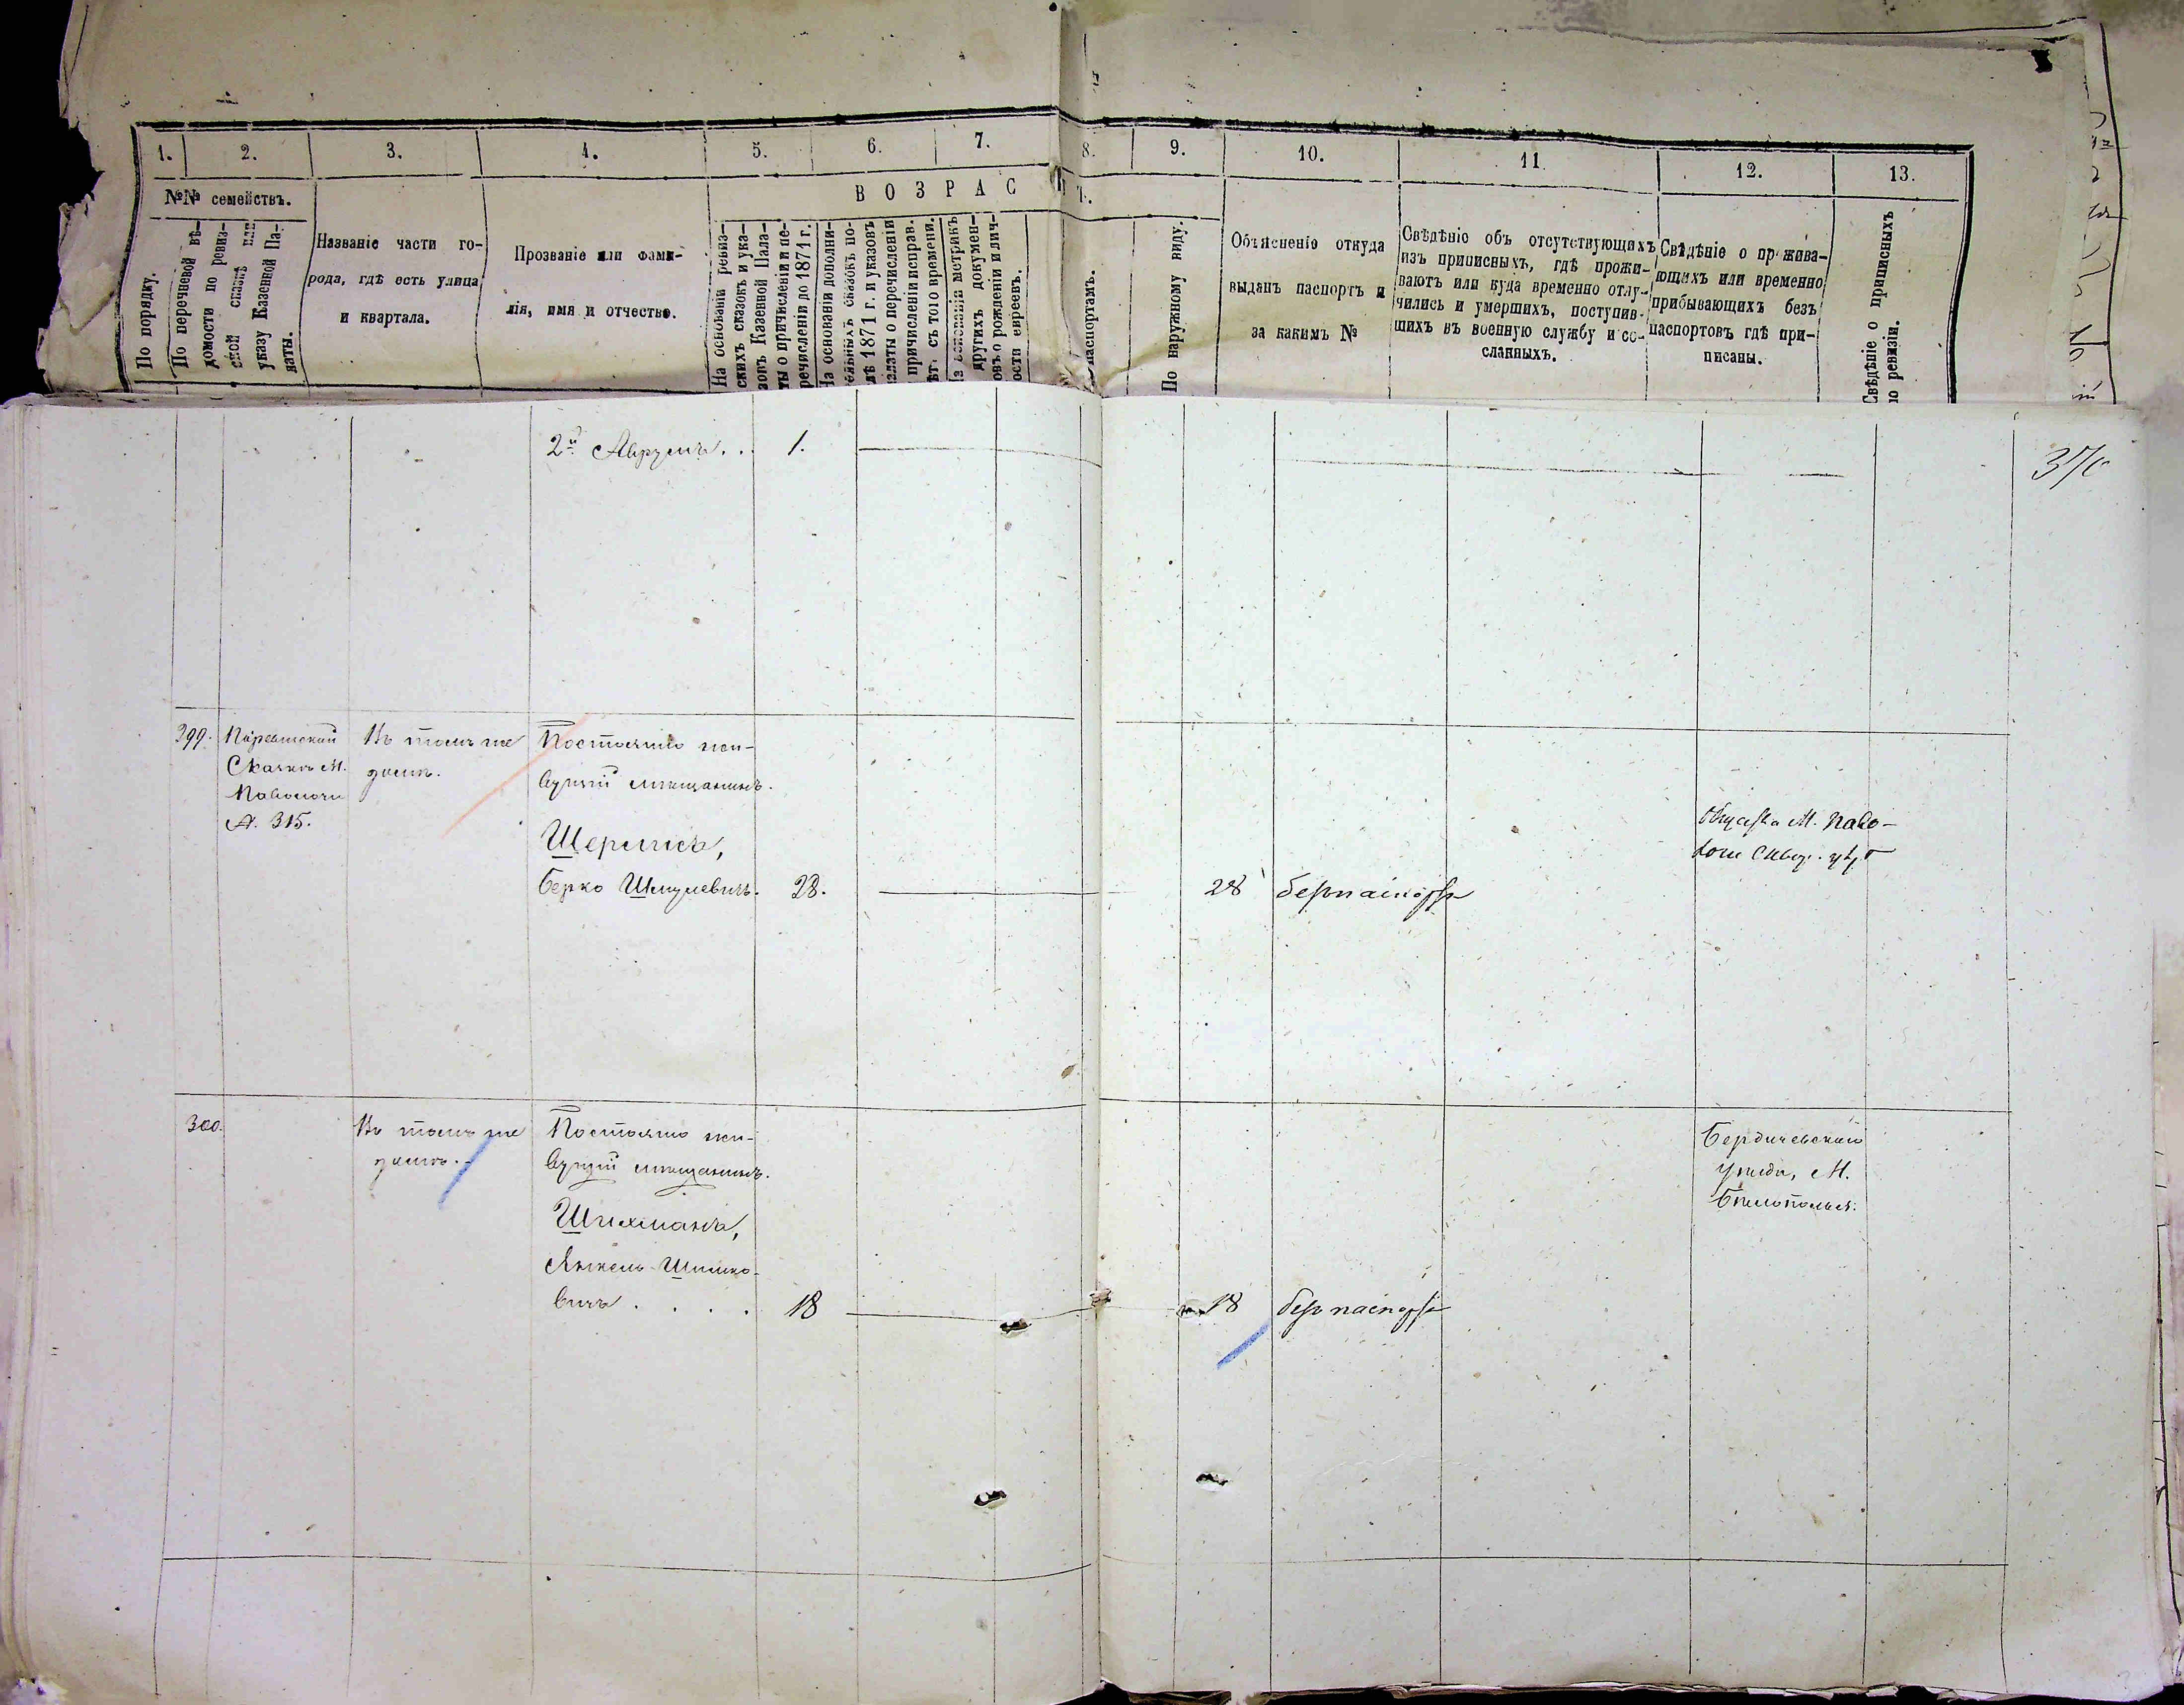 1.
2.
3.
4.
5.
6.
7.
8.
9.
10.
11.
12.
13.
№№ семействъ.
ВОЗРАСТ
По порядку.
По перечневой вѣ-
домости по ревиз-
ской сказкѣ или
указу Казенной Па-
латы.
Названіе части го-
рода, гдѣ есть улица
и квартала.
Прозваніе или фами-
лія, имя и отчество.
На основаніи ревиз-
скихъ сказокъ и ука-
зовъ Казенной Пала-
ты о причисленіи и пе-
речисленіи до 1871 г.
На основаніи дополни-
тельныхъ сказокъ по-
слѣ 1871 г. и указовъ
палаты о перечисленіи
причисленіи исправ.
лѣт. съ того времени.
На основаніи метрикъ
другихъ докумен-
овъ о рожденіи и лич-
ости евреевъ.
паспортамъ.
По наружному виду.
Объясненіе откуда
выданъ паспортъ и
за какимъ №
Свѣдѣніе объ отсутствующихъ
изъ приписныхъ, гдѣ прожи-
ваютъ или куда временно отлу-
чились и умершихъ, поступив-
шихъ въ военную службу и со-
сланныхъ.
Свѣдѣніе о прожива-
ющихъ или временно
прибывающихъ безъ
паспортовъ гдѣ при-
писаны.
Свѣдѣніе о приписныхъ
по ревизіи.
2й Аврумъ . . 1.
299.
Сказкѣ М.
Паволочи
№. 315.
Въ томъ же
домѣ.
Постоянно жи-
вущій мѣщанинъ.
Берко Шмулевичъ. 28.
28 безъ паспорта
Общества М. Паво-
лочи Сквир. уѣз.
300.
Въ томъ же
домѣ.
Постоянно жи-
вущій мѣщанинъ.
Шихманъ,
Янкель Шимко-
вичъ . . . . 18
18 безъ паспорта
Бердичевскаго
уѣзда, М.
Бѣлополья.